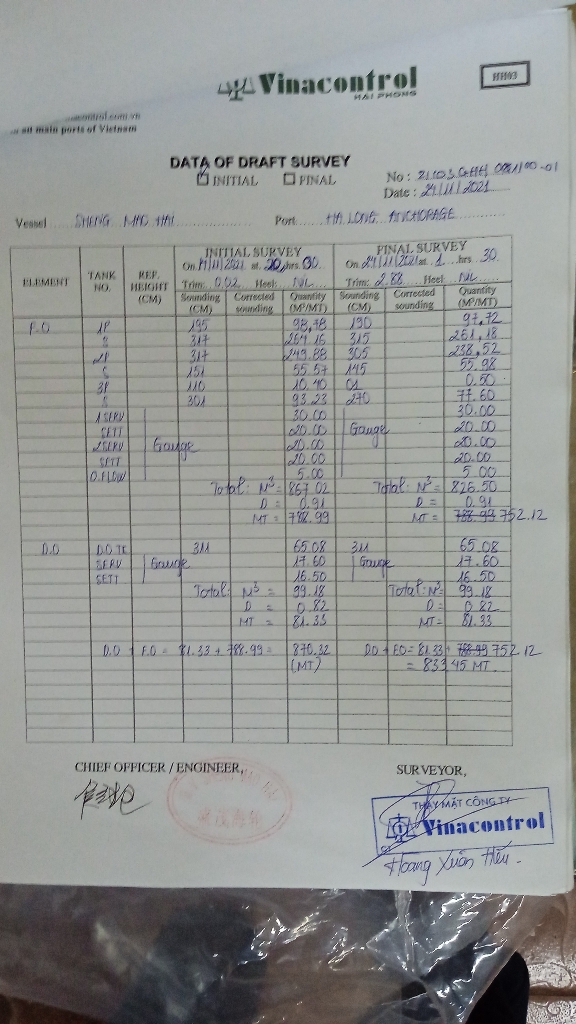 Vinacontrol
HAI PHONG
HH03
main ports of Vietnam
DATA OF DRAFT SURVEY
INITIAL FINAL
No :
Date : 24/11/2021
Vessel SHENG MAO HAI Port HA LONG ANCHORAGE
ELEMENT TANK NO. REF. HEIGHT (CM) INITIAL SURVEY FINAL SURVEY
On /11/2021 at 20 hrs. 00 On 24/11/2021 at 1 hrs 30
Trim: 0.02 Heel: NIL Trim: 2.88 Heel: NIL
Sounding (CM) Corrected sounding Quantity (M³/MT) Sounding (CM) Corrected sounding Quantity (M³/MT)
F.O 1P 195 98,78 190 97,72
S 317 264.16 315 261,18
2P 317 249.88 305 238,52
S 151 55.57 145 55.98
3P 110 10.40 01 0.50
S 301 93.23 270 77.60
1 SERV 30.00 30.00
SETT 20.00 Gauge 20.00
2SERV Gauge 20.00 20.00
SETT 20.00 20.00
O.FLOW 5.00 5.00
Total: M³ = 867.02 Total: M³ = 826.50
D = 0.91 D = 0.91
MT = 788.99 MT = 788.99 752.12
D.O D.O TK 311 65.08 311 65.08
SERV Gauge 17.60 Gauge 17.60
SETT 16.50 16.50
Total: M³ = 99.18 Total: M³ = 99.18
D = 0.82 D = 0.82
MT = 81.33 MT = 81.33
D.O + F.O = 81.33 + 788.99 = 870.32 D.O + F.O = 81.33 + 788.99 752.12
(MT) = 833.45 MT
CHIEF OFFICER / ENGINEER, SURVEYOR,
THAY MẶT CÔNG TY
Vinacontrol
Hoàng Xuân Hiếu